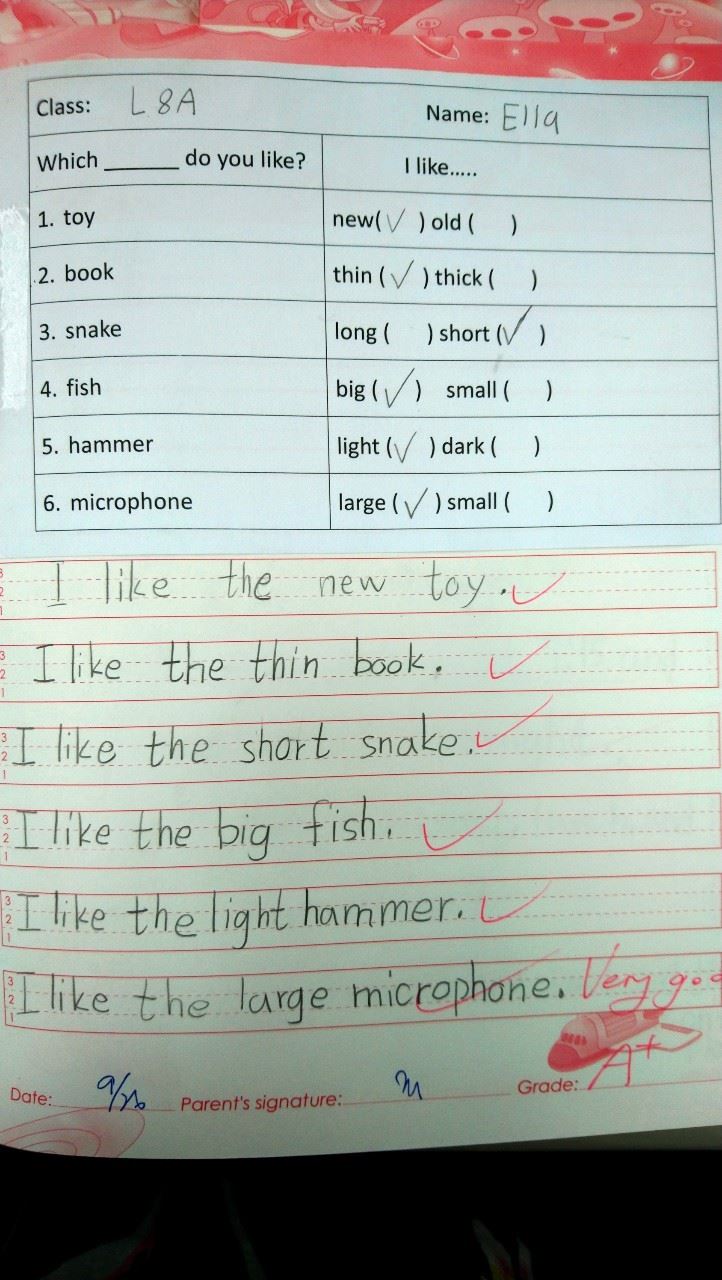 Class: L8A Name: Ella
Which ______ do you like? I like.....
1. toy new(✓) old ( )
2. book thin (✓) thick ( )
3. snake long ( ) short (✓)
4. fish big (✓) small ( )
5. hammer light (✓) dark ( )
6. microphone large (✓) small ( )
3
2
1
I like the new toy.
3
2
1
I like the thin book.
3
2
1
I like the short snake.
3
2
1
I like the big fish.
3
2
1
I like the light hammer.
3
2
1
I like the large microphone. Very goo
Date: Parent's signature: Grade: A+